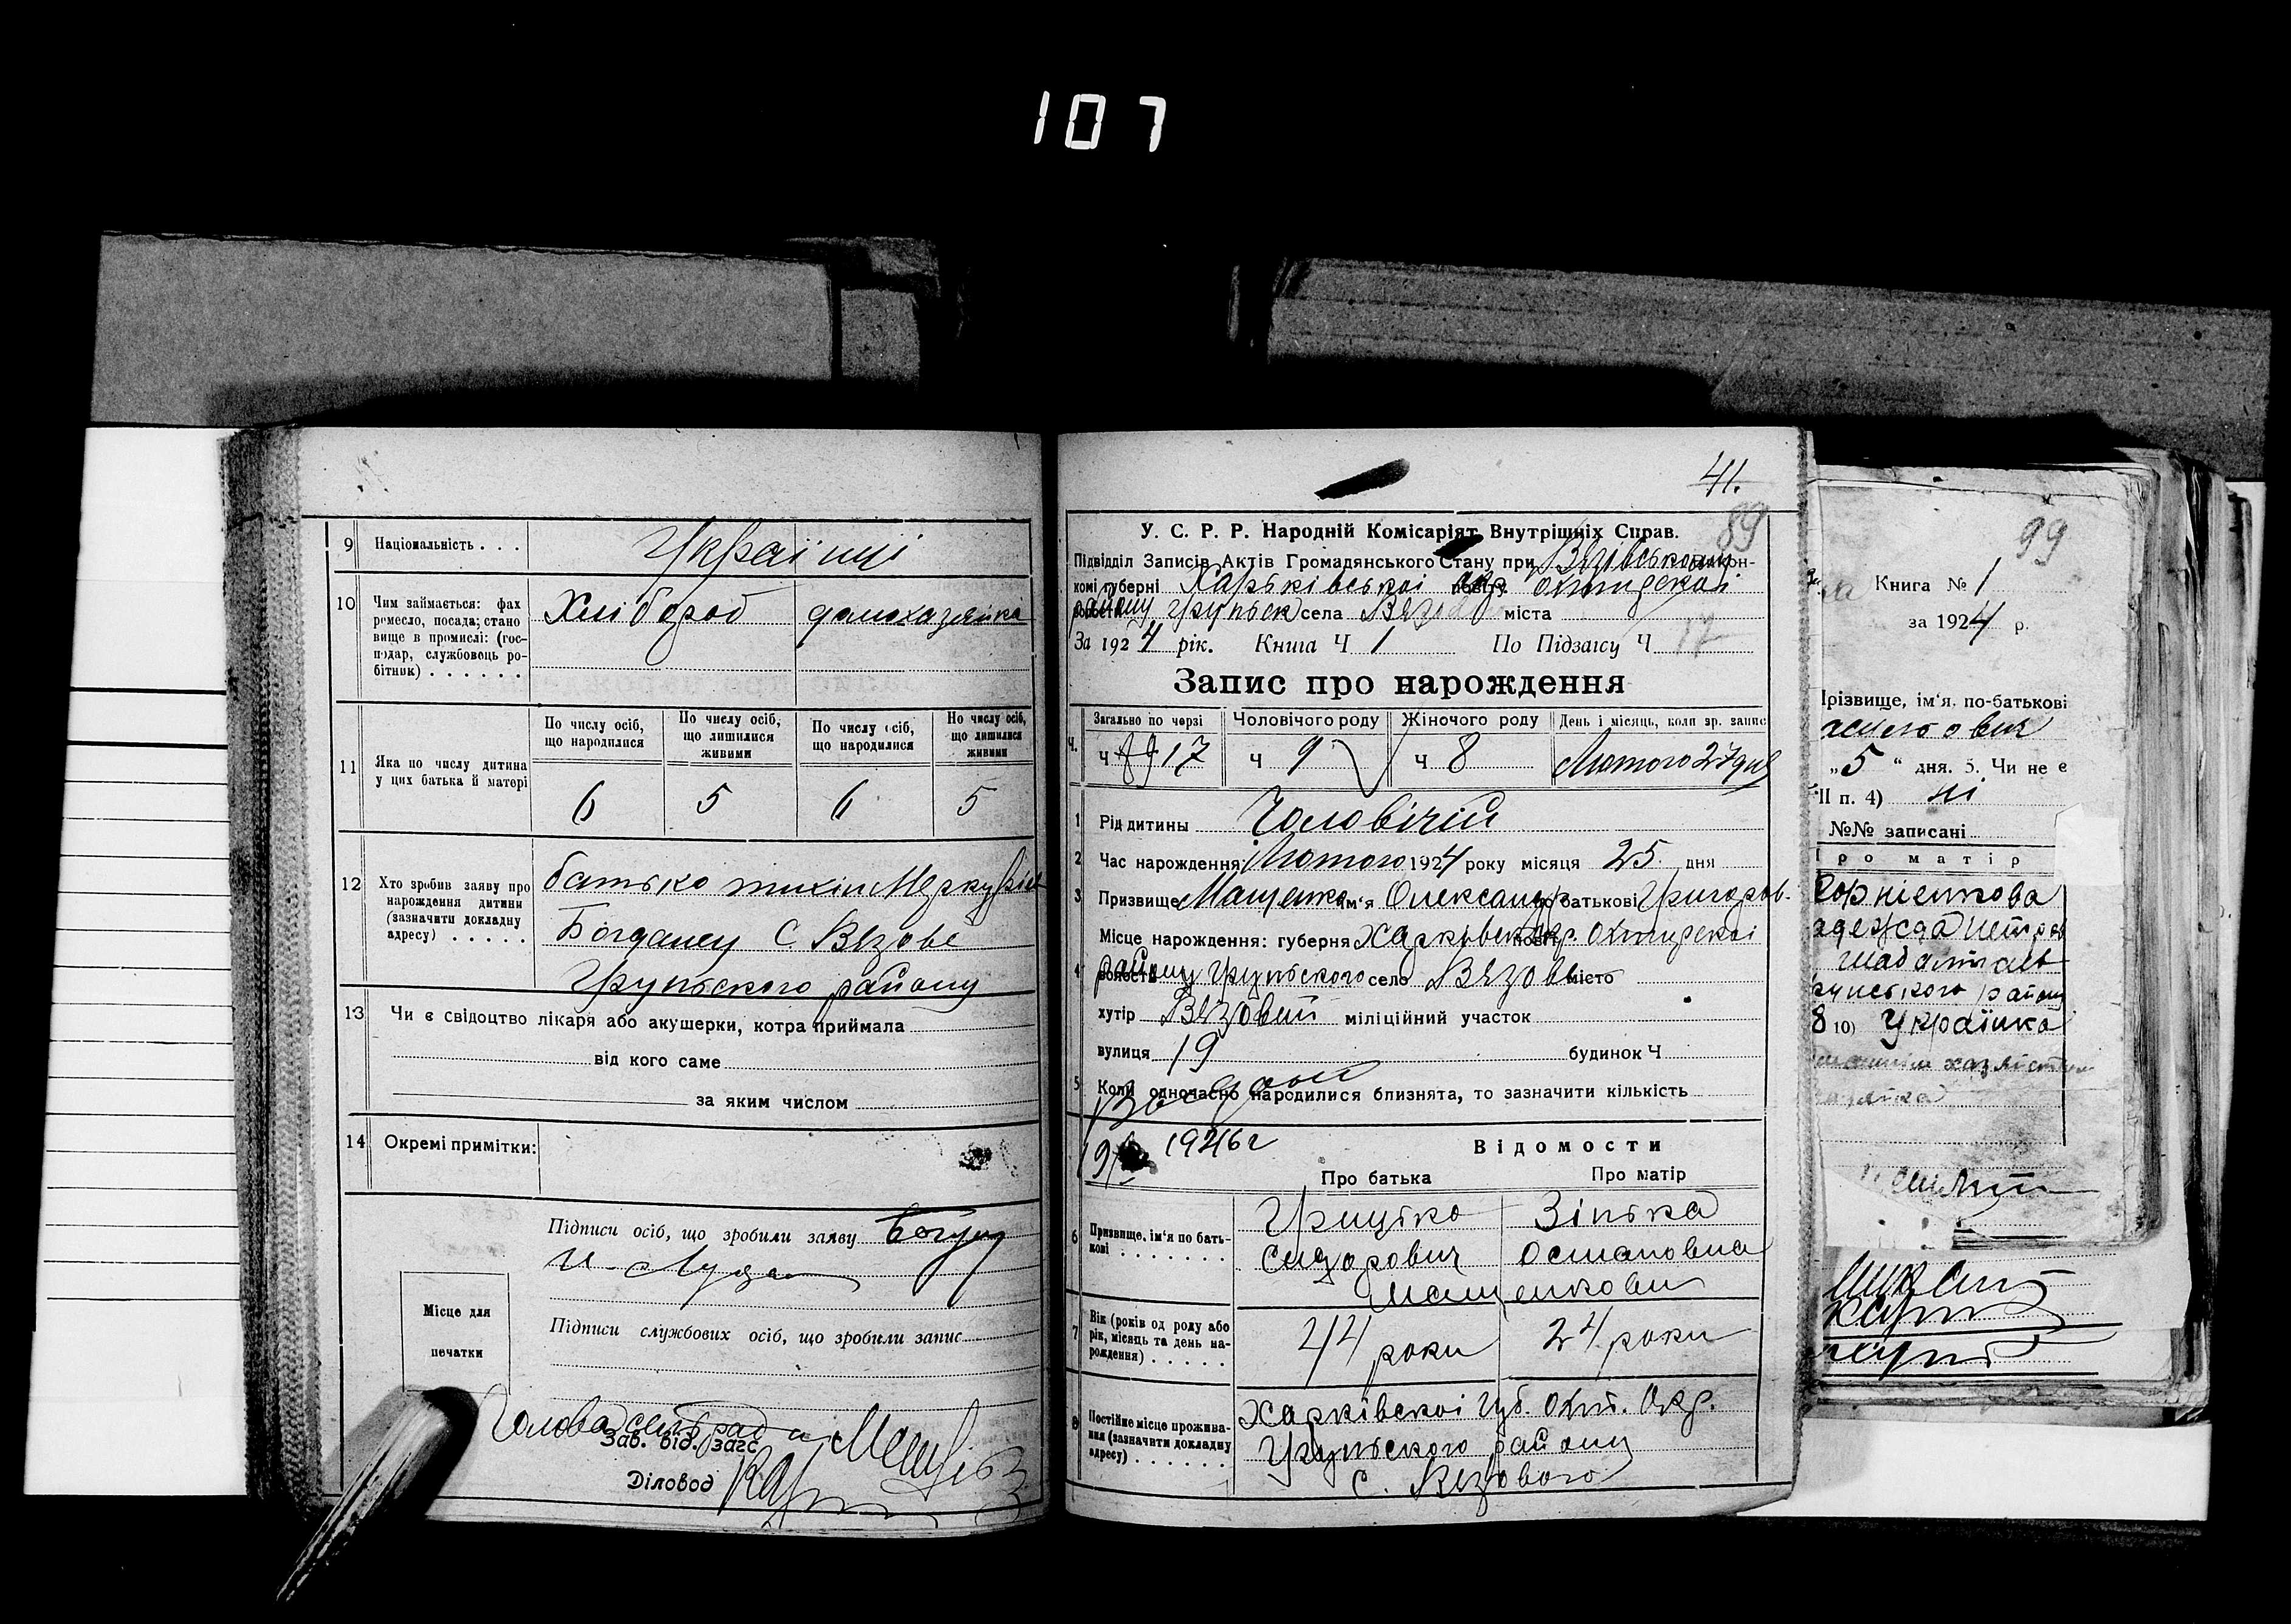 107
9 Національність . . . Українці
10 Чим займається: фах ремесло, посада; стано вище в промислі: (гос- подар, службовець ро- бітник) . . . . . .
Хлібороб
домохазяйка
11 Яка по числу дитина у цих батька й матері
По числу осіб, що народилися
По числу осіб, що лишилися живими
По числу осіб, що народилися
Но числу осіб, що лишилися живими
6 5 6 5
12 Хто зробив заяву про нарождення дитини (зазначити докладну адресу) . . . . .
батько
Богданец С Вязове
Грунського району
13 Чи є свідоцтво лікаря або акушерки, котра приймала
від кого саме
за яким числом
14 Окремі примітки:
Підписи осіб, що зробили заяву
Підписи службових осіб, що зробили запис
Місце для печатки
Голова сельради
Зав. від. загс
Діловод
41.
89
У. С. Р. Р. Народній Комісаріят Внутрішніх Справ.
Підвідділ Записів Актів Громадянського Стану при Вязівському Виконкомі
губерні Харьківської повіту окр Охтирскої
волости району Грунськ села Вязове міста
За 1924 рік. Книга Ч 1 По Підзагсу Ч 17
Запис про нарождення
Ч. Загально по черзі Чоловічого роду Жіночого роду День і місяць, коли зр. запис
ч 89 17 ч 9 ч 8 Лютого 27 дня
1 Рід дитини Чоловічій
2 Час нарождення: Лютого 1924 року місяця 25 дня
3 Призвище Мащенко ім'я Олександр по батькові Григоров.
Місце нарождення: губерня Харківской повіт окр. Охтирскоі
4 волость району Грунського село Вязове місто
хутір Вязовий міліційний участок
вулиця 19 будинок Ч
5 Коли одночасно народилися близнята, то зазначити кількість
1946 г
Відомости
Про батька Про матір
6 Призвище, ім'я по батькові . . . . . . . .
Грицько
Сидорович
Зінька
Остаповна
Мащенкови
7 Вік (років од роду або рік, місяць та день нарождення) . . . . .
44 роки
24 роки
8 Постійне місце прожива- ння (зазначити докладну адресу) . . . . . .
Харківскоі Губ. Охт. Окр.
Грунського району
с. Вязового
99
Книга № 1
за 1924 р.
різвище, ім'я, по-батькові
„5“ дня. 5. Чи не є
II п. 4) ні
№№ записані
про матір
району
8 10) Українка